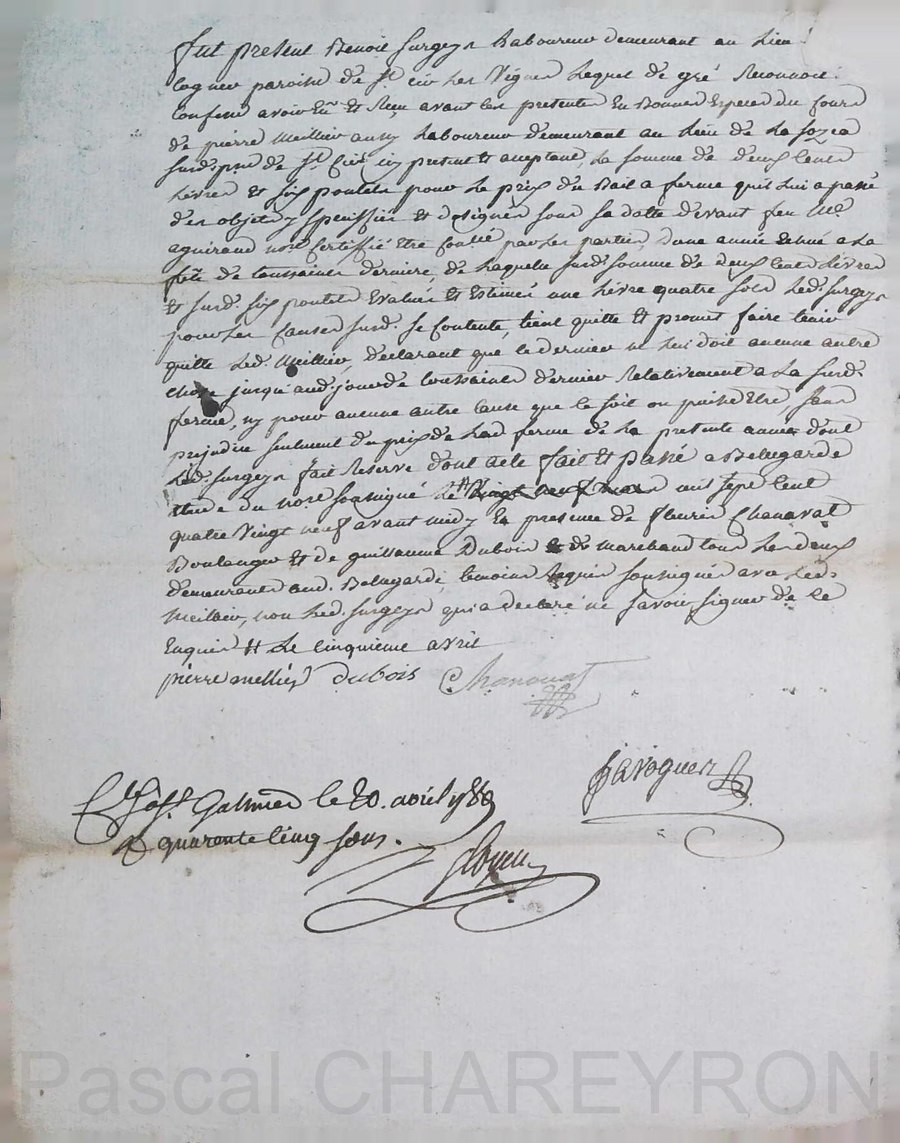 fut present Benoit Surgeyx Laboureur demeurant au Lieu
Cognew paroisse de St Cir Les Vignes Lequel de gré Reconnoit
Confesse avoir Eu et Reçu avant les presentes En Bonnes Especes du cours
de pierre Meillier aussy Laboureur demeurant au Lieu de La
surd. psse de St Cir icy present et aceptant, La somme de deux Cents
Livres et six poulets pour Le prix du Bail a ferme qu'il Lui a passé
des objets y speciffiés et designés sous sa datte devant feu Me
aguiraud nore Certiffié Etre Coulié par Les parties, d'une année Echue a La
fête de toussaints derniere de Laquelle surd. somme de deux Cents Livres
Et surd. six poulets Evalués Et Estimés une Livre quatre sols Led. Surgeyx
pour Les Causes surd. se Contente, tient quitte Et promet faire tenir
quitte Led. Meillier, declarant que ce dernier ne Lui doit aucune autre
Chose jusqu'aud. jour de toussaints dernier Relativement a La surd.
ferme, ny pour aucune autre Cause que Ce soit ou puisse Etre, sans
prejudice seulment du prix de Lad ferme de La presente année dont
Led. Surgeyx fait Reserve dont acte fait Et passé a Bellegarde
Etude du nore soussigné Le # vingt neuf mars mil sept Cent
quatre Vingt neuf avant midy En presence de fleurie Chanavat
Boulanger Et de guillaume Dubois Md marchand tous Les deux
demeurants aud. Bellegarde, temoins Requis soussignés avec Led.
Meillier, non Led. Surgeyx qui a declaré ne savoir signer de Ce
Enquis # Le Cinquieme avril
pierre mellier dubois Chanavat
Javoguer
Cllé a St Galmier le 20. avril 1789
R quarente Cinq sous.